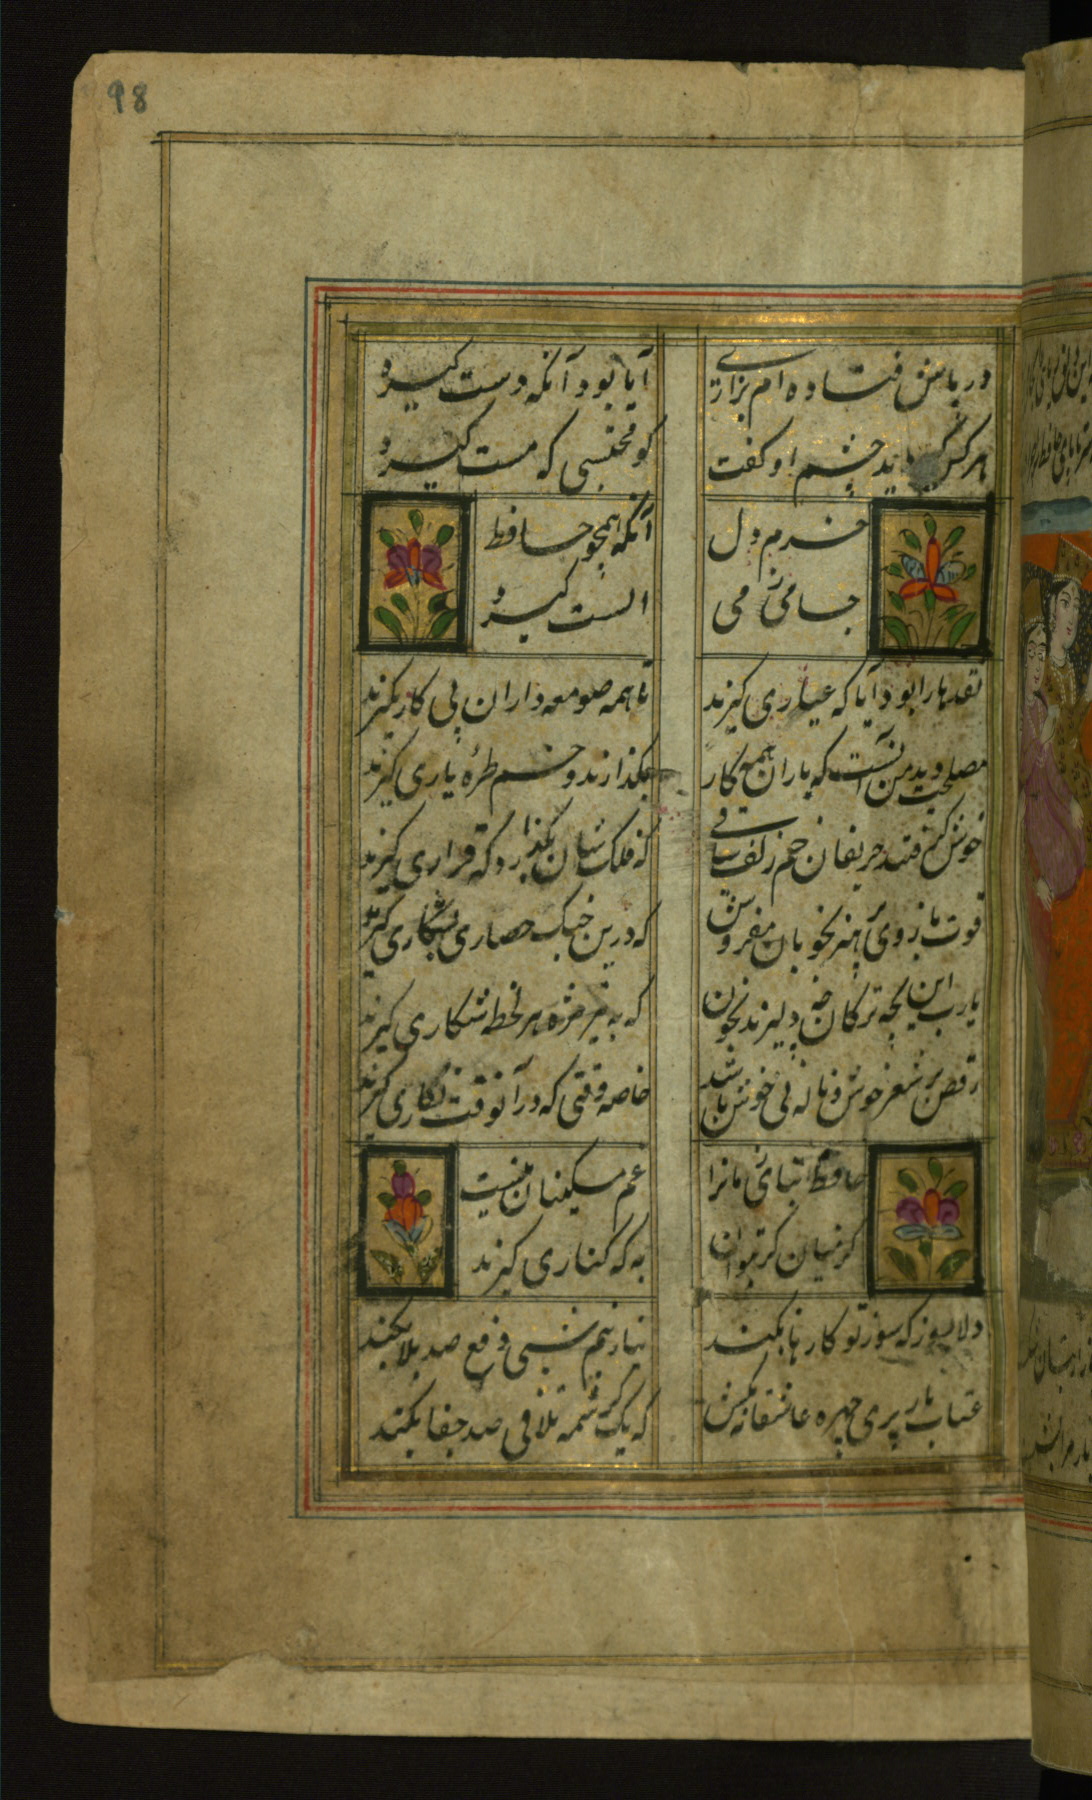 98
در پاش فتاده ام بزاری آیا بود آنکه دست گیرد
هر کس که بدید چشم او گفت کو محتسبی که مست گیرد
خرم دل آنکه همچو حافظ
جامی ز می الست گیرد
نقدها را بود آیا که عیاری گیرند تا همه صومعه داران پی کار گیرند
مصلحت دید من آنست که یاران همه کار بگذارند و خم طره یاری گیرند
خوش گرفتند حریفان خم زلف ساقی که فلک شان بگذارد که قراری گیرند
قوت بازوی پرهنر بخوبان مفروش که درین خیل حصاری بسواری گیرند
یارب این بچه ترکان چه دلیرند بخون که به تیر مژه هر لحظه شکاری گیرند
رقص بر شعر خوش و ناله نی خوش باشد خاصه وقتی که در آنوقت نگاری گیرند
حافظ ابنای زمانرا غم مسکینان نیست
گر میان گر بتوان به که کناری گیرند
دلا بسوز که سوز تو کارها بکند نیاز نیم شبی دفع صد بلا بکند
عتاب یار پری چهره عاشقانه بکش که یک کرشمه تلافی صد جفا بکند